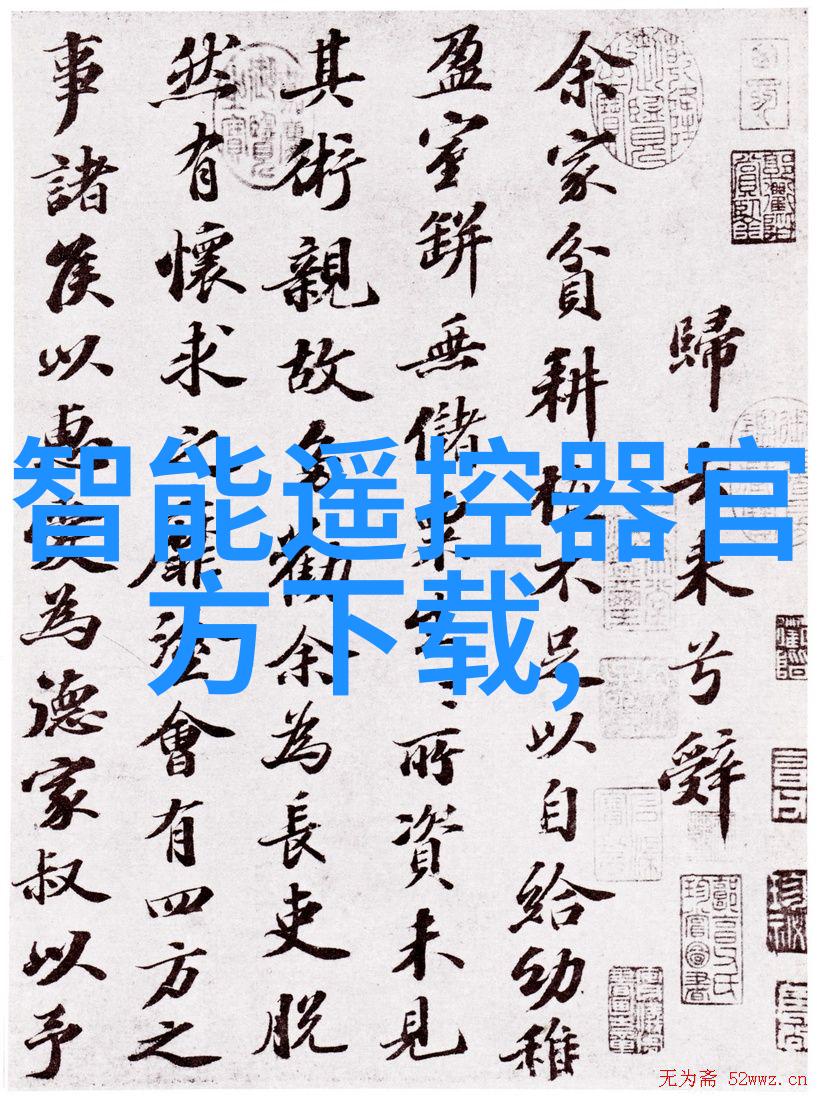 歸去来兮辭
余家貧耕植不足以自給幼稚
盈室缾無儲粟生生所資未見
其術親故多勸余為長吏脱
然有懷求之靡途會有四方之
事諸侯以惠愛為德家叔以予
智能遥控器官
方下载,
无为斋 52wwz.cn